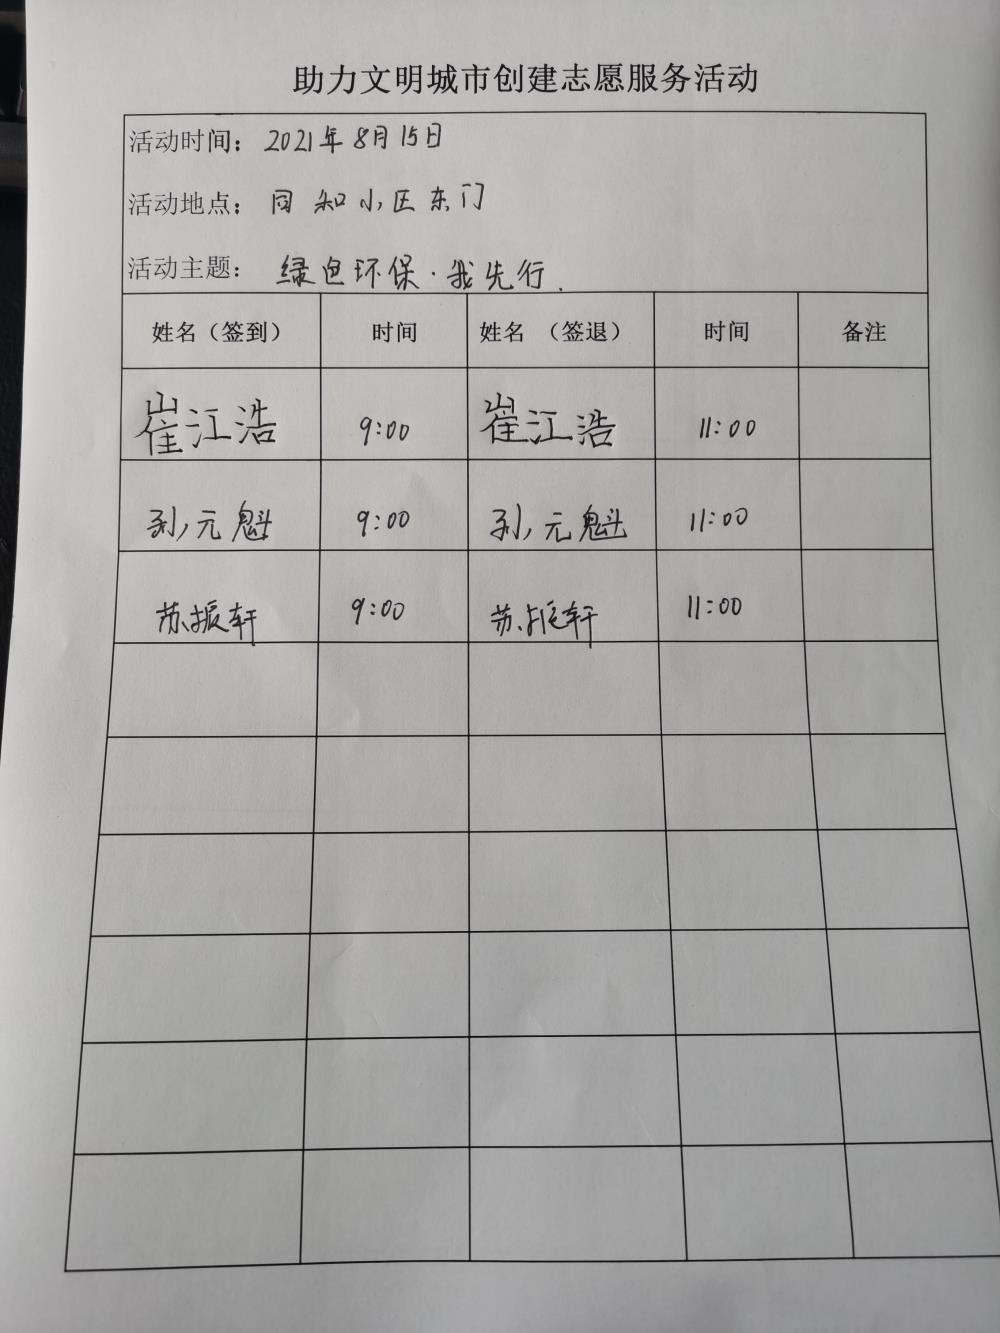 助力文明城市创建志愿服务活动
活动时间：2021年8月15日
活动地点：同知小区东门
活动主题：绿色环保·我先行.
姓名（签到） 时间 姓名 （签退） 时间 备注
崔江浩 9:00 崔江浩 11:00
孙元魁 9:00 孙元魁 11:00
苏振轩 9:00 苏振轩 11:00